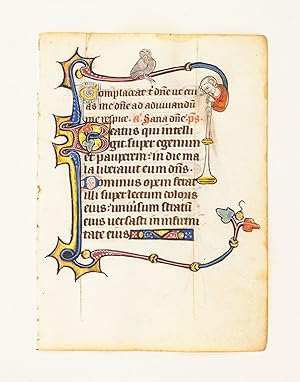 Complaceat t dne ut eru
as me dne ad adiuvandu
me respice. a. Sana dne ps
Beatus qui intelli
git super egenum
et pauperem: in die ma
la liberavit eum dns.
Dominus opem ferat
illi super lectum doloris
eius: universum stratu
eius versasti in infirmi
tate eius